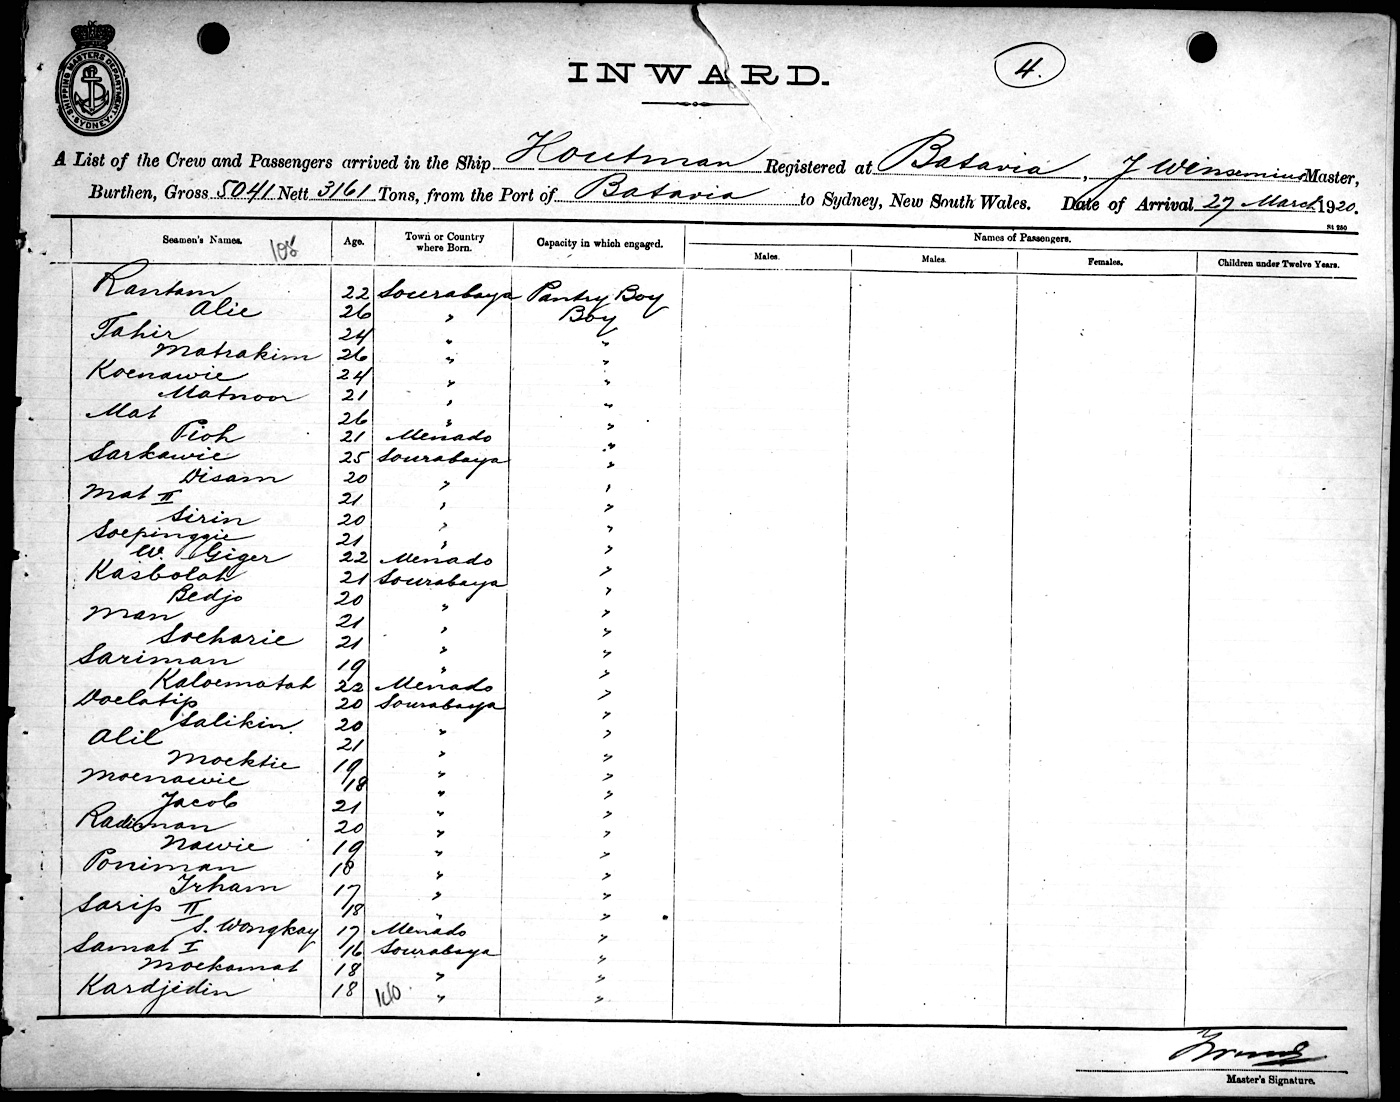 SHIPPING MASTERS DEPARTMENT
SYDNEY
INWARD.
4.
A List of the Crew and Passengers arrived in the Ship Houtman Registered at Batavia, J Winsemius Master,
Burthen, Gross 5041 Nett 3161 Tons, from the Port of Batavia to Sydney, New South Wales. Date of Arrival 27 March 1920.
St 250
Seamen's Names. 108 Age. Town or Country where Born. Capacity in which engaged. Names of Passengers.
Males. Males. Females. Children under Twelve Years.
Rantam 22 Sourabaya Pantry Boy
Alie 26 " Boy
Tahir 24 " "
Matrakim 26 " "
Koenawie 24 " "
Matnoor 21 " "
Mat 26 " "
Pioh 21 Menado "
Sarkawie 25 Sourabaya "
Disam 20 " "
Mat II 21 " "
Sirin 20 " "
Soepinggie 21 " "
W. Giger 22 Menado "
Kasbolah 21 Sourabaya "
Bedjo 20 " "
Man 21 " "
Soeharie 21 " "
Sariman 19 " "
Kaloematah 22 Menado "
Doelatip 20 Sourabaya "
Salikin. 20 " "
Alil 21 " "
Moektie 19 " "
Moenawie 18 " "
Jacob 21 " "
Radiman 20 " "
Nawie 19 " "
Poniman 18 " "
Irham 17 " "
Sarip II 18 " "
S. Wongkay 17 Menado "
Samat I 16 Sourabaya "
Moekamat 18 " "
Kardjedin 18 " "
Master's Signature.